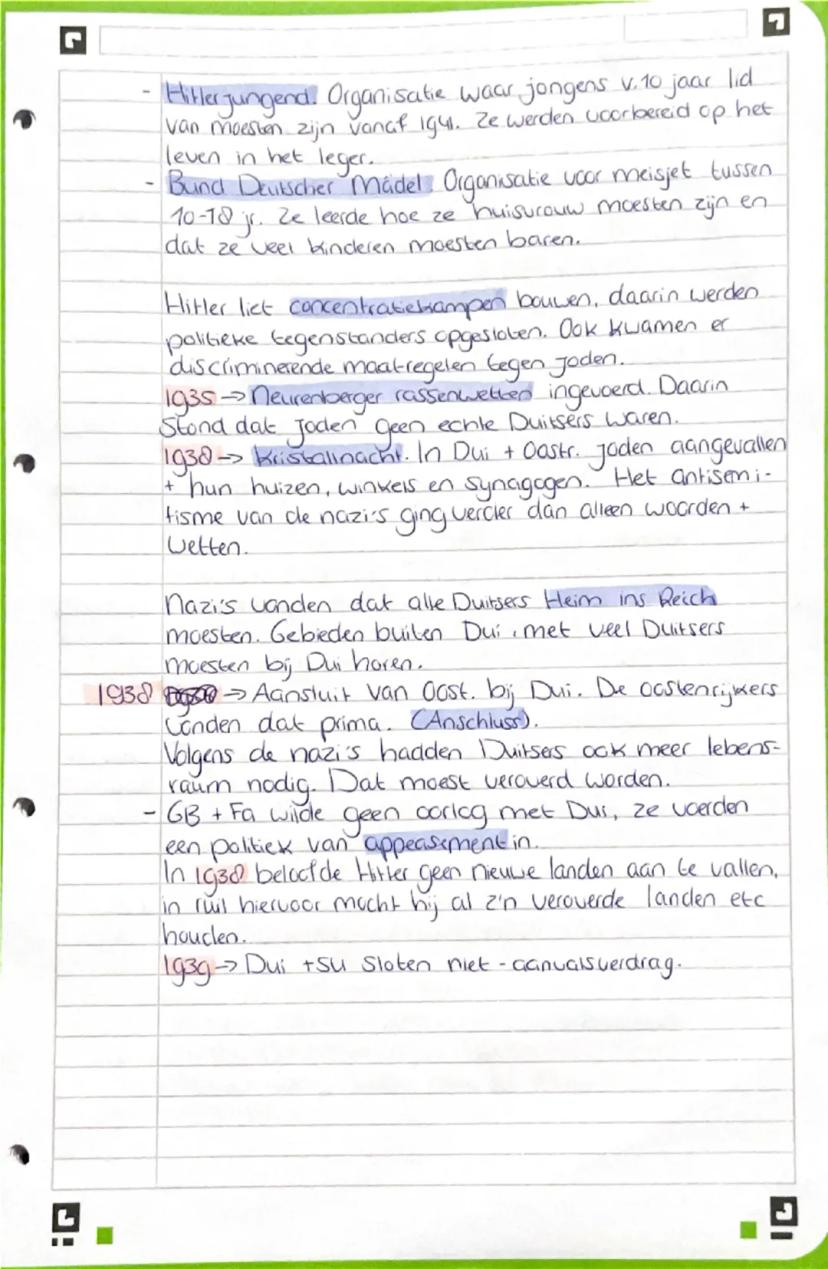 - Hitlerjungend. Organisatie waar jongens v. 10 jaar lid
van moesten zijn vanaf 1941. Ze werden voorbereid op het
leven in het leger.
- Bund Deutscher Mädel: Organisatie voor meisjet tussen
10-18 jr. Ze leerde hoe ze huisvrouw moesten zijn en
dat ze veel kinderen moesten baren.
Hitler liet concentratiekampen bouwen, daarin werden
politieke tegenstanders opgesloten. Ook kwamen er
discriminerende maatregelen tegen joden.
1935 → Neurenberger rassenwetten ingevoerd. Daarin
stond dat joden geen echte Duitsers waren.
1938 → Kristallnacht. In Dui + Oostr. joden aangevallen
+ hun huizen, winkels en synagogen. Het antisemi-
tisme van de nazi's ging verder dan alleen woorden +
wetten.
Nazi's vonden dat alle Duitsers Heim ins Reich
moesten. Gebieden buiten Dui. met veel Duitsers
moesten bij Dui horen.
1938 → Aansluit van Oost. bij Dui. De oostenrijkers
vonden dat prima. (Anschluss).
Volgens de nazi's hadden Duitsers ook meer lebens-
raum nodig. Dat moest veroverd worden.
- GB + Fa wilde geen oorlog met Dui, ze voerden
een politiek van appeasement in.
In 1938 beloofde Hitler geen nieuwe landen aan te vallen,
in ruil hiervoor mocht hij al z'n veroverde landen etc
houden.
1939 → Dui + SU sloten niet-aanvalsverdrag.